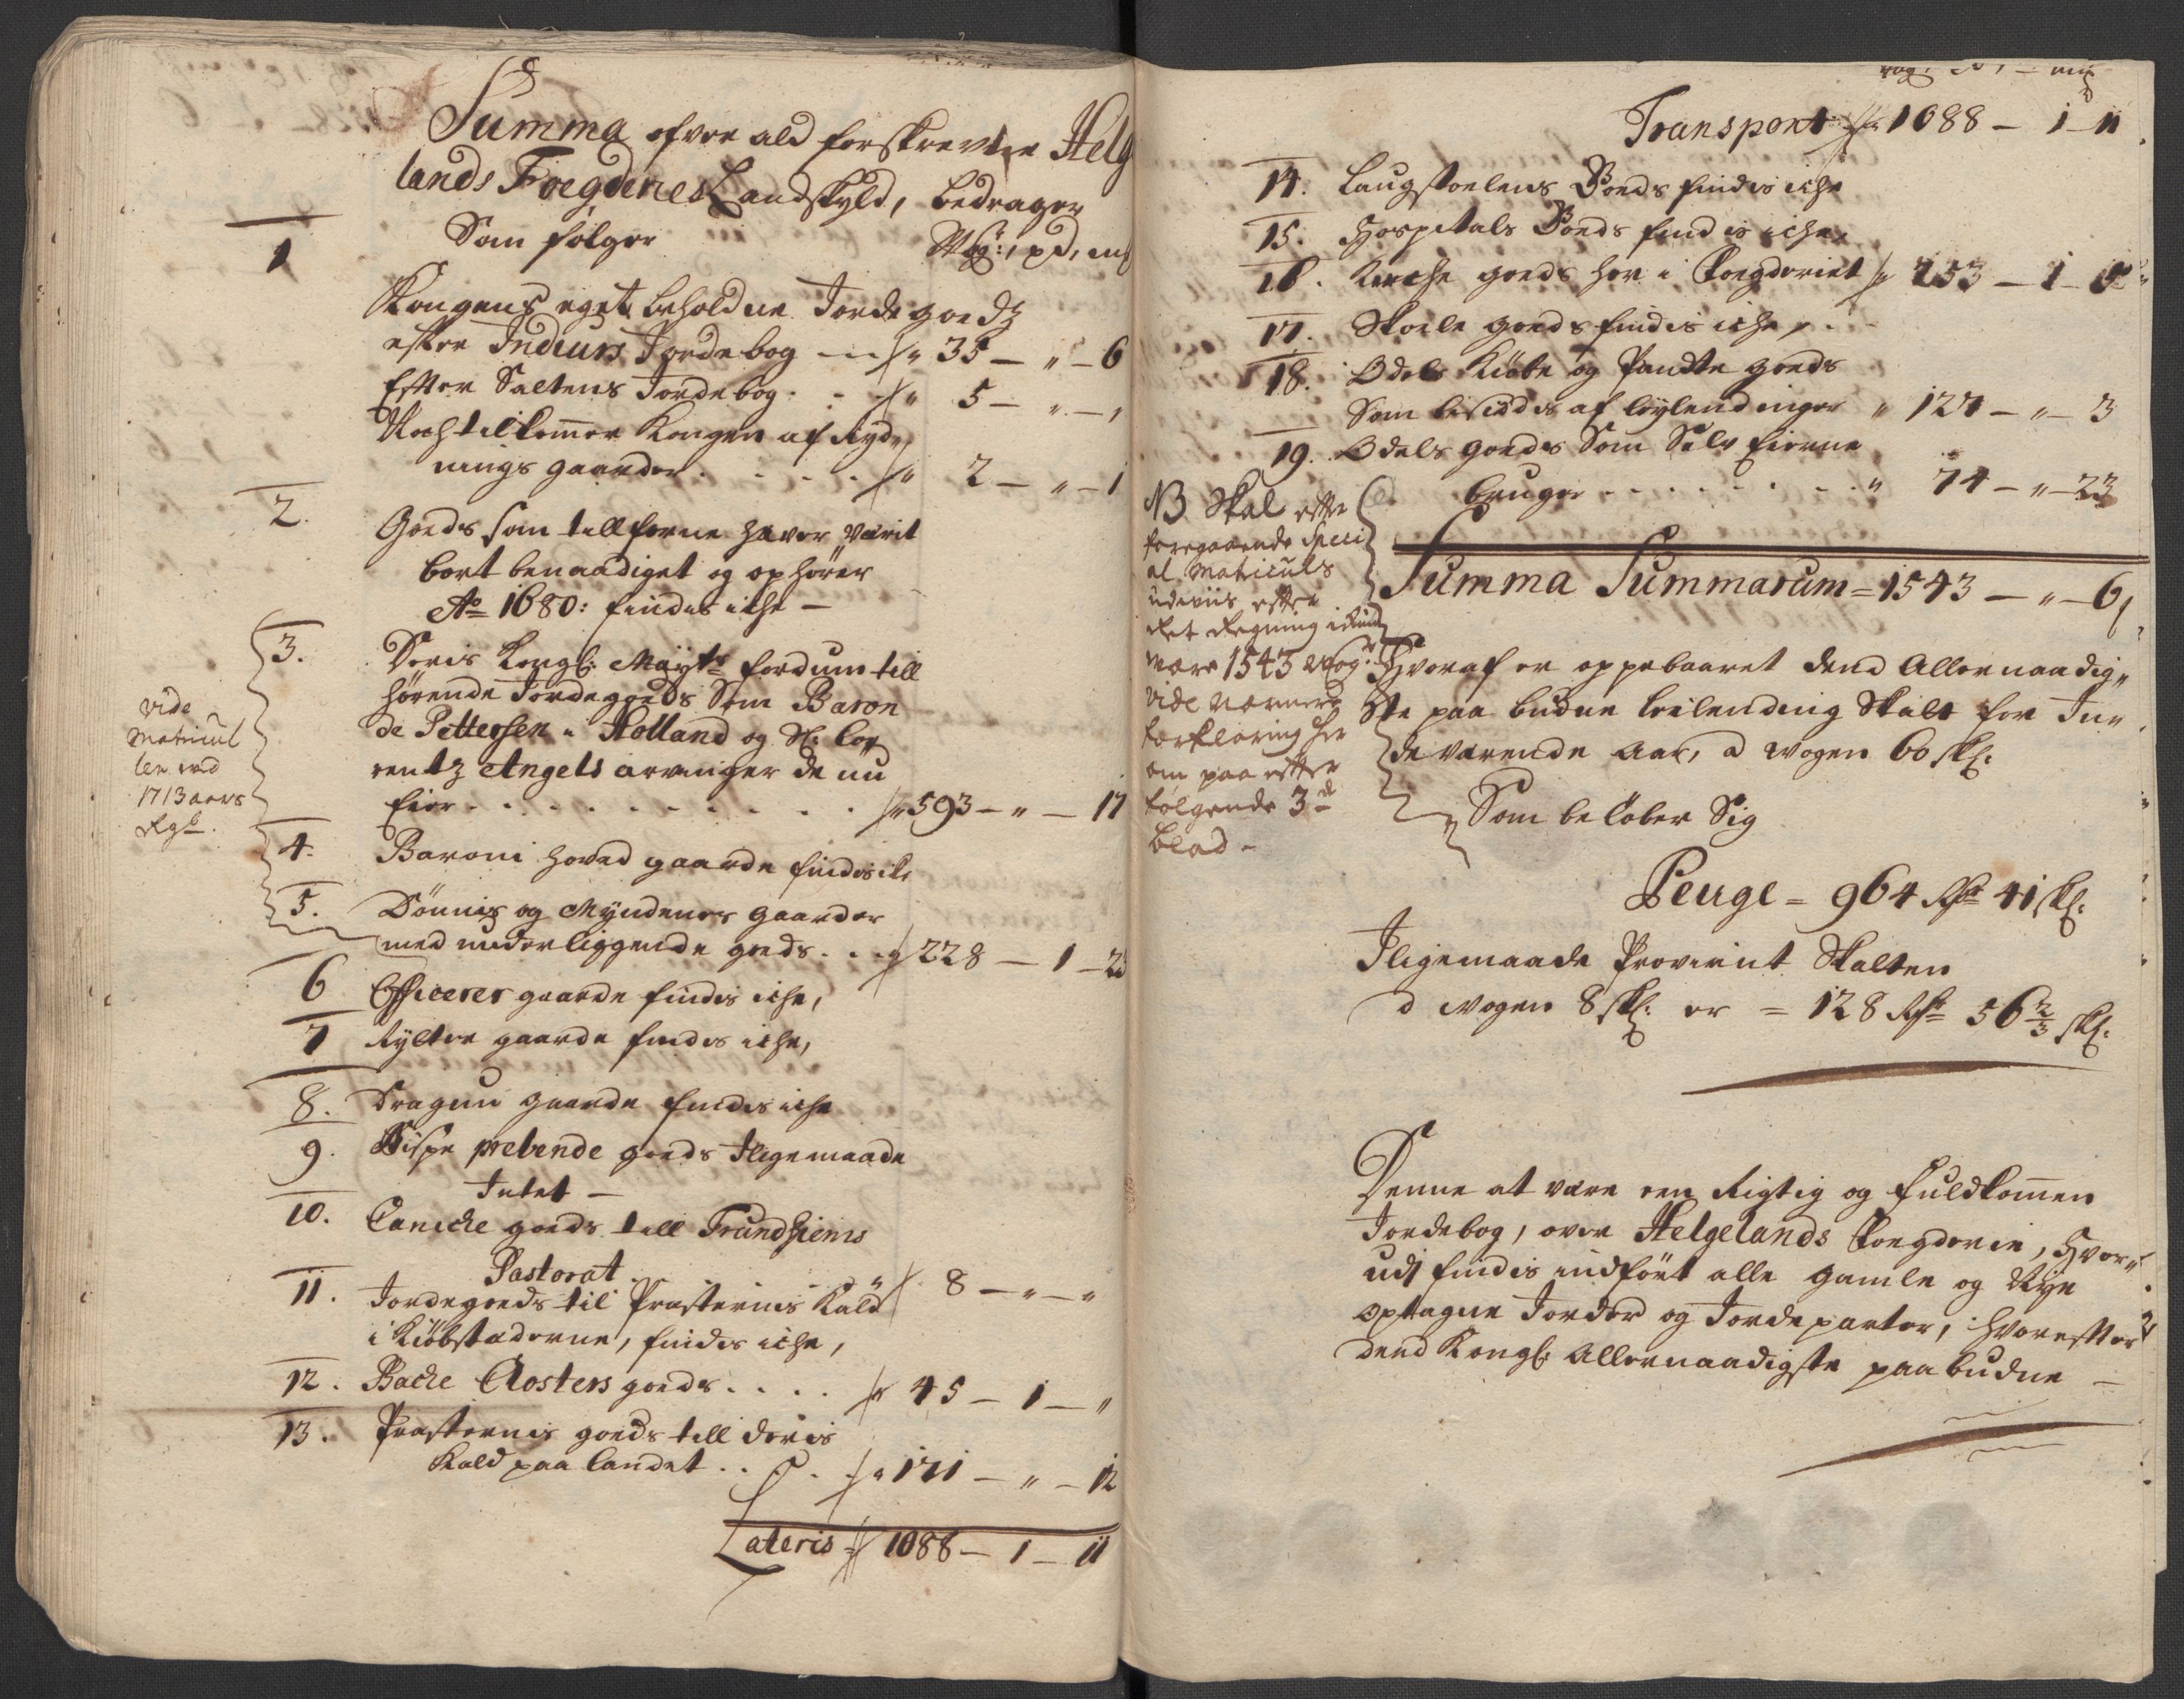 Summa ofver ald forskrevne Helg
lands Foegderies Landskyld, bedrager
Som følger
Wog:, pd, mk
1
Kongens eget beholdne Jordegodz
efter Indeurs Jordebog - - - 35 - " - 6
Efter Saltens Jordebog . - - " 5 - " - "
Noch tilkommer Kongen af Ryd-
nings gaarder . . . . . " 2 - " - 1
2.
Goeds som tillforne haver værit
bort benaadiget og ophører
Ao 1680: findes iche -
3.
Deris Kongl: Mayts fordum till
hørende Jordegoeds Som Baron
de Pettersen i Holland og Sl: Lo-
rentz Angels arvinger de nu
Eier . . . . . . . . . 593 - " - 17
vide
Matricul
len ved
1713 aars
Rgb.
4.
Baroni hoved gaarde findes ike
5.
Dönnis og Mÿndenes gaarder
med underliggende goeds . . . 228 - 1 - 23
6
Officerer gaarde findes iche,
7
Rytter gaarde findes iche,
8.
Dragun gaarde findes iche
9.
Bispe prebende goeds Iligemaade
Intet -
10.
Canicke goeds till Trundhiems
Pastorat . . . 8 - " - "
11.
Jordegoeds til Præsternis Kald
i Kiöbstæderne, findes iche,
12.
Bache Closters goeds . . . . 45 - 1 - "
13.
Præsternis goeds till deris
Kald paa landet . . . . " 171 - " - 12
Lateris = 1088 - 1 - 11
wog: pd, - mk
Transport 1088 - 1 - 11
14. Laugstoelens Goeds findes iche
15. Hospitals Goeds findes iche
16. Kirche goeds her i Foegderiet 253 - 1 -
17. Skoele goeds findes iche, . -
18. Odels Kiöbe og Pandte goeds
Som besiddes af leylendinger " 127 - " - 3
19. Odels goeds Som Selv Eierne
bruger . . . . . . . . " 74 - " - 23
Summa Summarum = 1543 - " - 6,
NB Skal efter
foregaaende Speci
al Matriculs
udviis efter
ret Regning ickun
være 1543 wog:
vide nærmere
forklaring her
om paa efter
følgende 3d
blad -
Hvoraf er oppebaaret dend Allernaadig-
Ste paa budne leilending Skatt for In-
deværende Aar, a wogen 60 sk:
Som beløber Sig
Penge = 964 Rdr 41 sk:
Iligemaade Proviant Skatten
a wogen 8 sk: er = 128 Rdr 56 2/3 sk:
Denne at være een Rigtig og fuldkommen
Jordebog, over Helgelands Foegderie, Hvor-
udj findes indfört alle gamle og Nye
optagne Jorder og Jordeparter, hvorefter
dend Kongl: Allernaadigste paabudne -